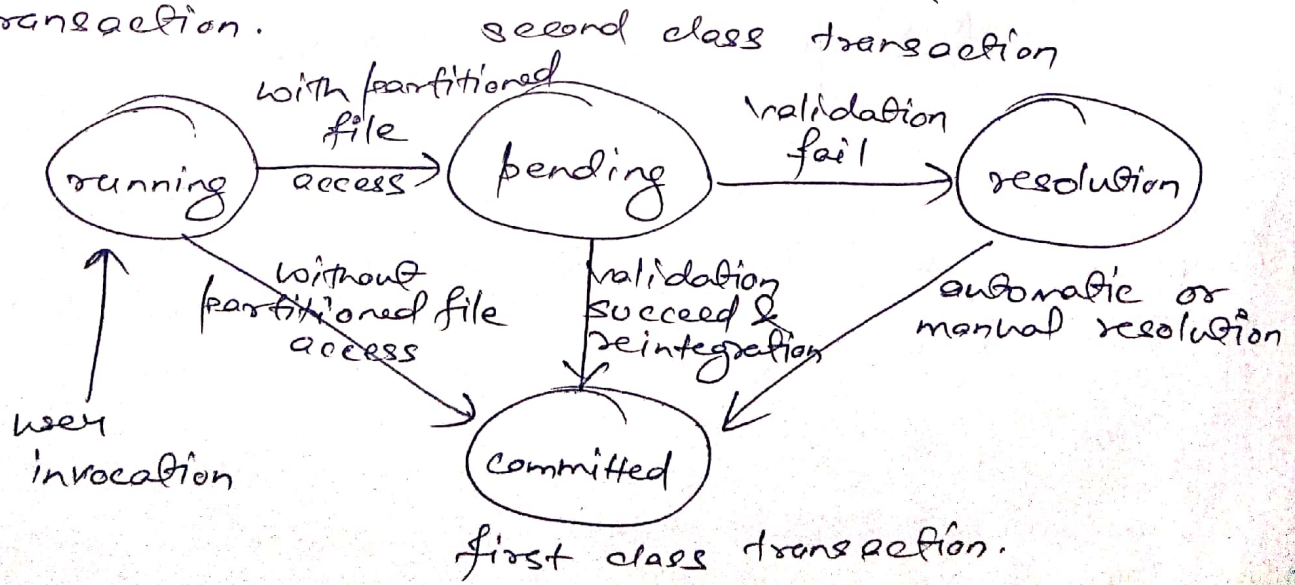 ransaction.
second class transaction
with partitioned
file
access
running
pending
validation
fail
resolution
without
partitioned file
access
validation
succeed &
reintegration
automatic or
manual resolution
user
invocation
committed
first class transaction.